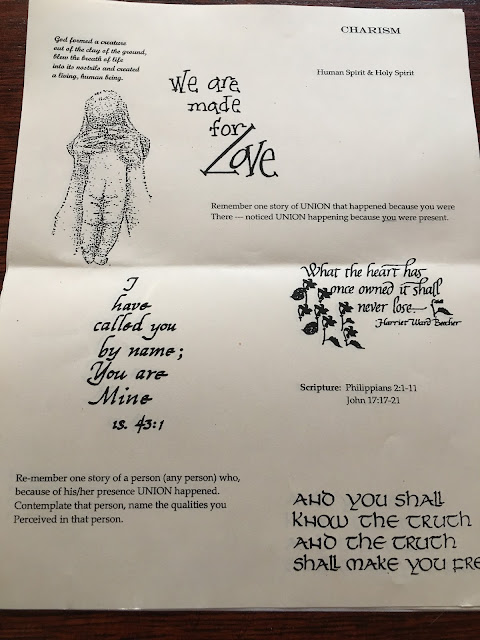 CHARISM
God formed a creature
out of the clay of the ground,
blew the breath of life
into its nostrils and created
a living, human being.
Human Spirit & Holy Spirit
We are
made
for
Love
Remember one story of UNION that happened because you were
There — noticed UNION happening because you were present.
I
have
called you
by name;
You are
Mine
is. 43:1
What the heart has
once owned it shall
never lose—
Harriet Ward Beecher
Scripture: Philippians 2:1-11
John 17:17-21
Re-member one story of a person (any person) who,
because of his/her presence UNION happened.
Contemplate that person, name the qualities you
Perceived in that person.
AND YOU SHALL
KNOW THE TRUTH
AND THE TRUTH
SHALL MAKE YOU FRE